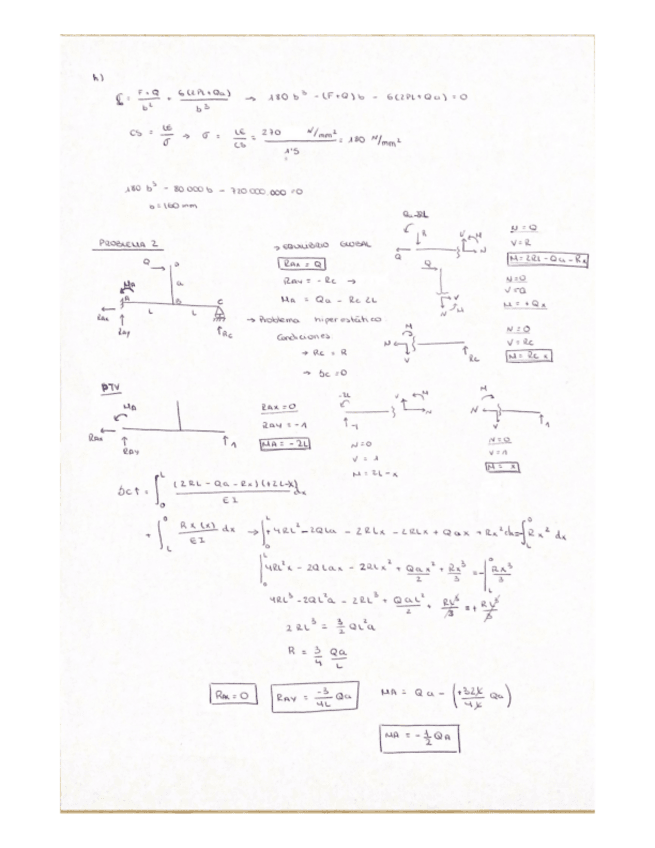 h)
σ = F+Q / b² + 6(2PL+Qa) / b³ → 180 b³ - (F+Q)b - 6(2PL+Qa) = 0
CS = LE / σ → σ = LE / CS = 270 N/mm² / 1'5 = 180 N/mm²
180 b³ - 80000 b - 720 000.000 = 0
b = 160 mm
PROBLEMA 2
→ EQUILIBRIO GLOBAL
RAx = Q
RAY = - Rc →
MA = Qa - Rc 2L
→ Problema hiperestático
Condiciones:
→ Rc = R
→ δc = 0
Q
D
a
MA
A
B
C
L
L
RAx
RAY
Rc
R
M
V
N
Q
N = Q
V = R
M = 2RL - Qa - Rx
Q
V
N
M
N = 0
V = Q
M = + Qx
M
N
V
Rc
N = 0
V = Rc
M = Rc x
PTV
MA
RAx
RAY
1
RAx = 0
RAY = -1
MA = - 2L
-2L
-1
V
M
N
N = 0
V = 1
M = 2L - x
M
N
V
1
N = 0
V = 1
M = x
δc↑ = ∫₀ᴸ (2RL - Qa - Rx)(+2L-x) / EI dx
+ ∫ Rx(x) / EI dx → ∫ +4RL² - 2QLa - 2RLx - 2RLx + Qax + Rx² dx = ∫ Rx² dx
4RL²x - 2QLax - 2RLx² + Qax² / 2 + Rx³ / 3 = - Rx³ / 3
4RL³ - 2QL²a - 2RL³ + QaL² / 2 + RL³ / 3 = + RL³ / 3
2RL³ = 3/2 QL²a
R = 3/4 Qa/L
RAx = 0
RAY = -3/4L Qa
MA = Qa - (+32L / 4L Qa)
MA = - 1/2 QA